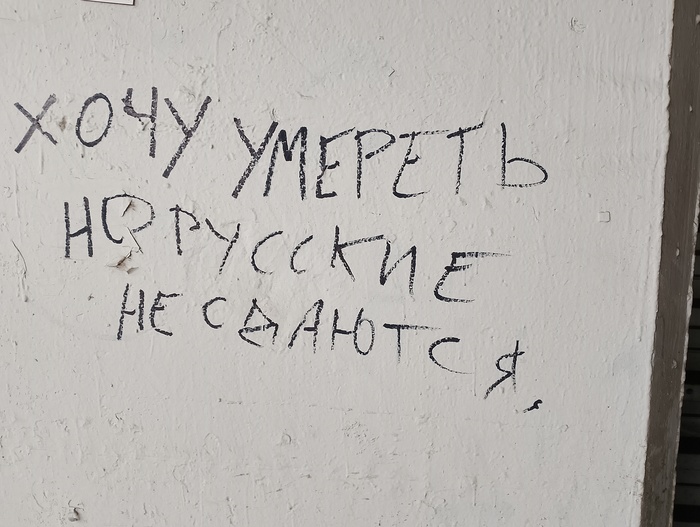 ХОЧУ УМЕРЕТЬ
НО РУССКИЕ
НЕ СДАЮТСЯ.